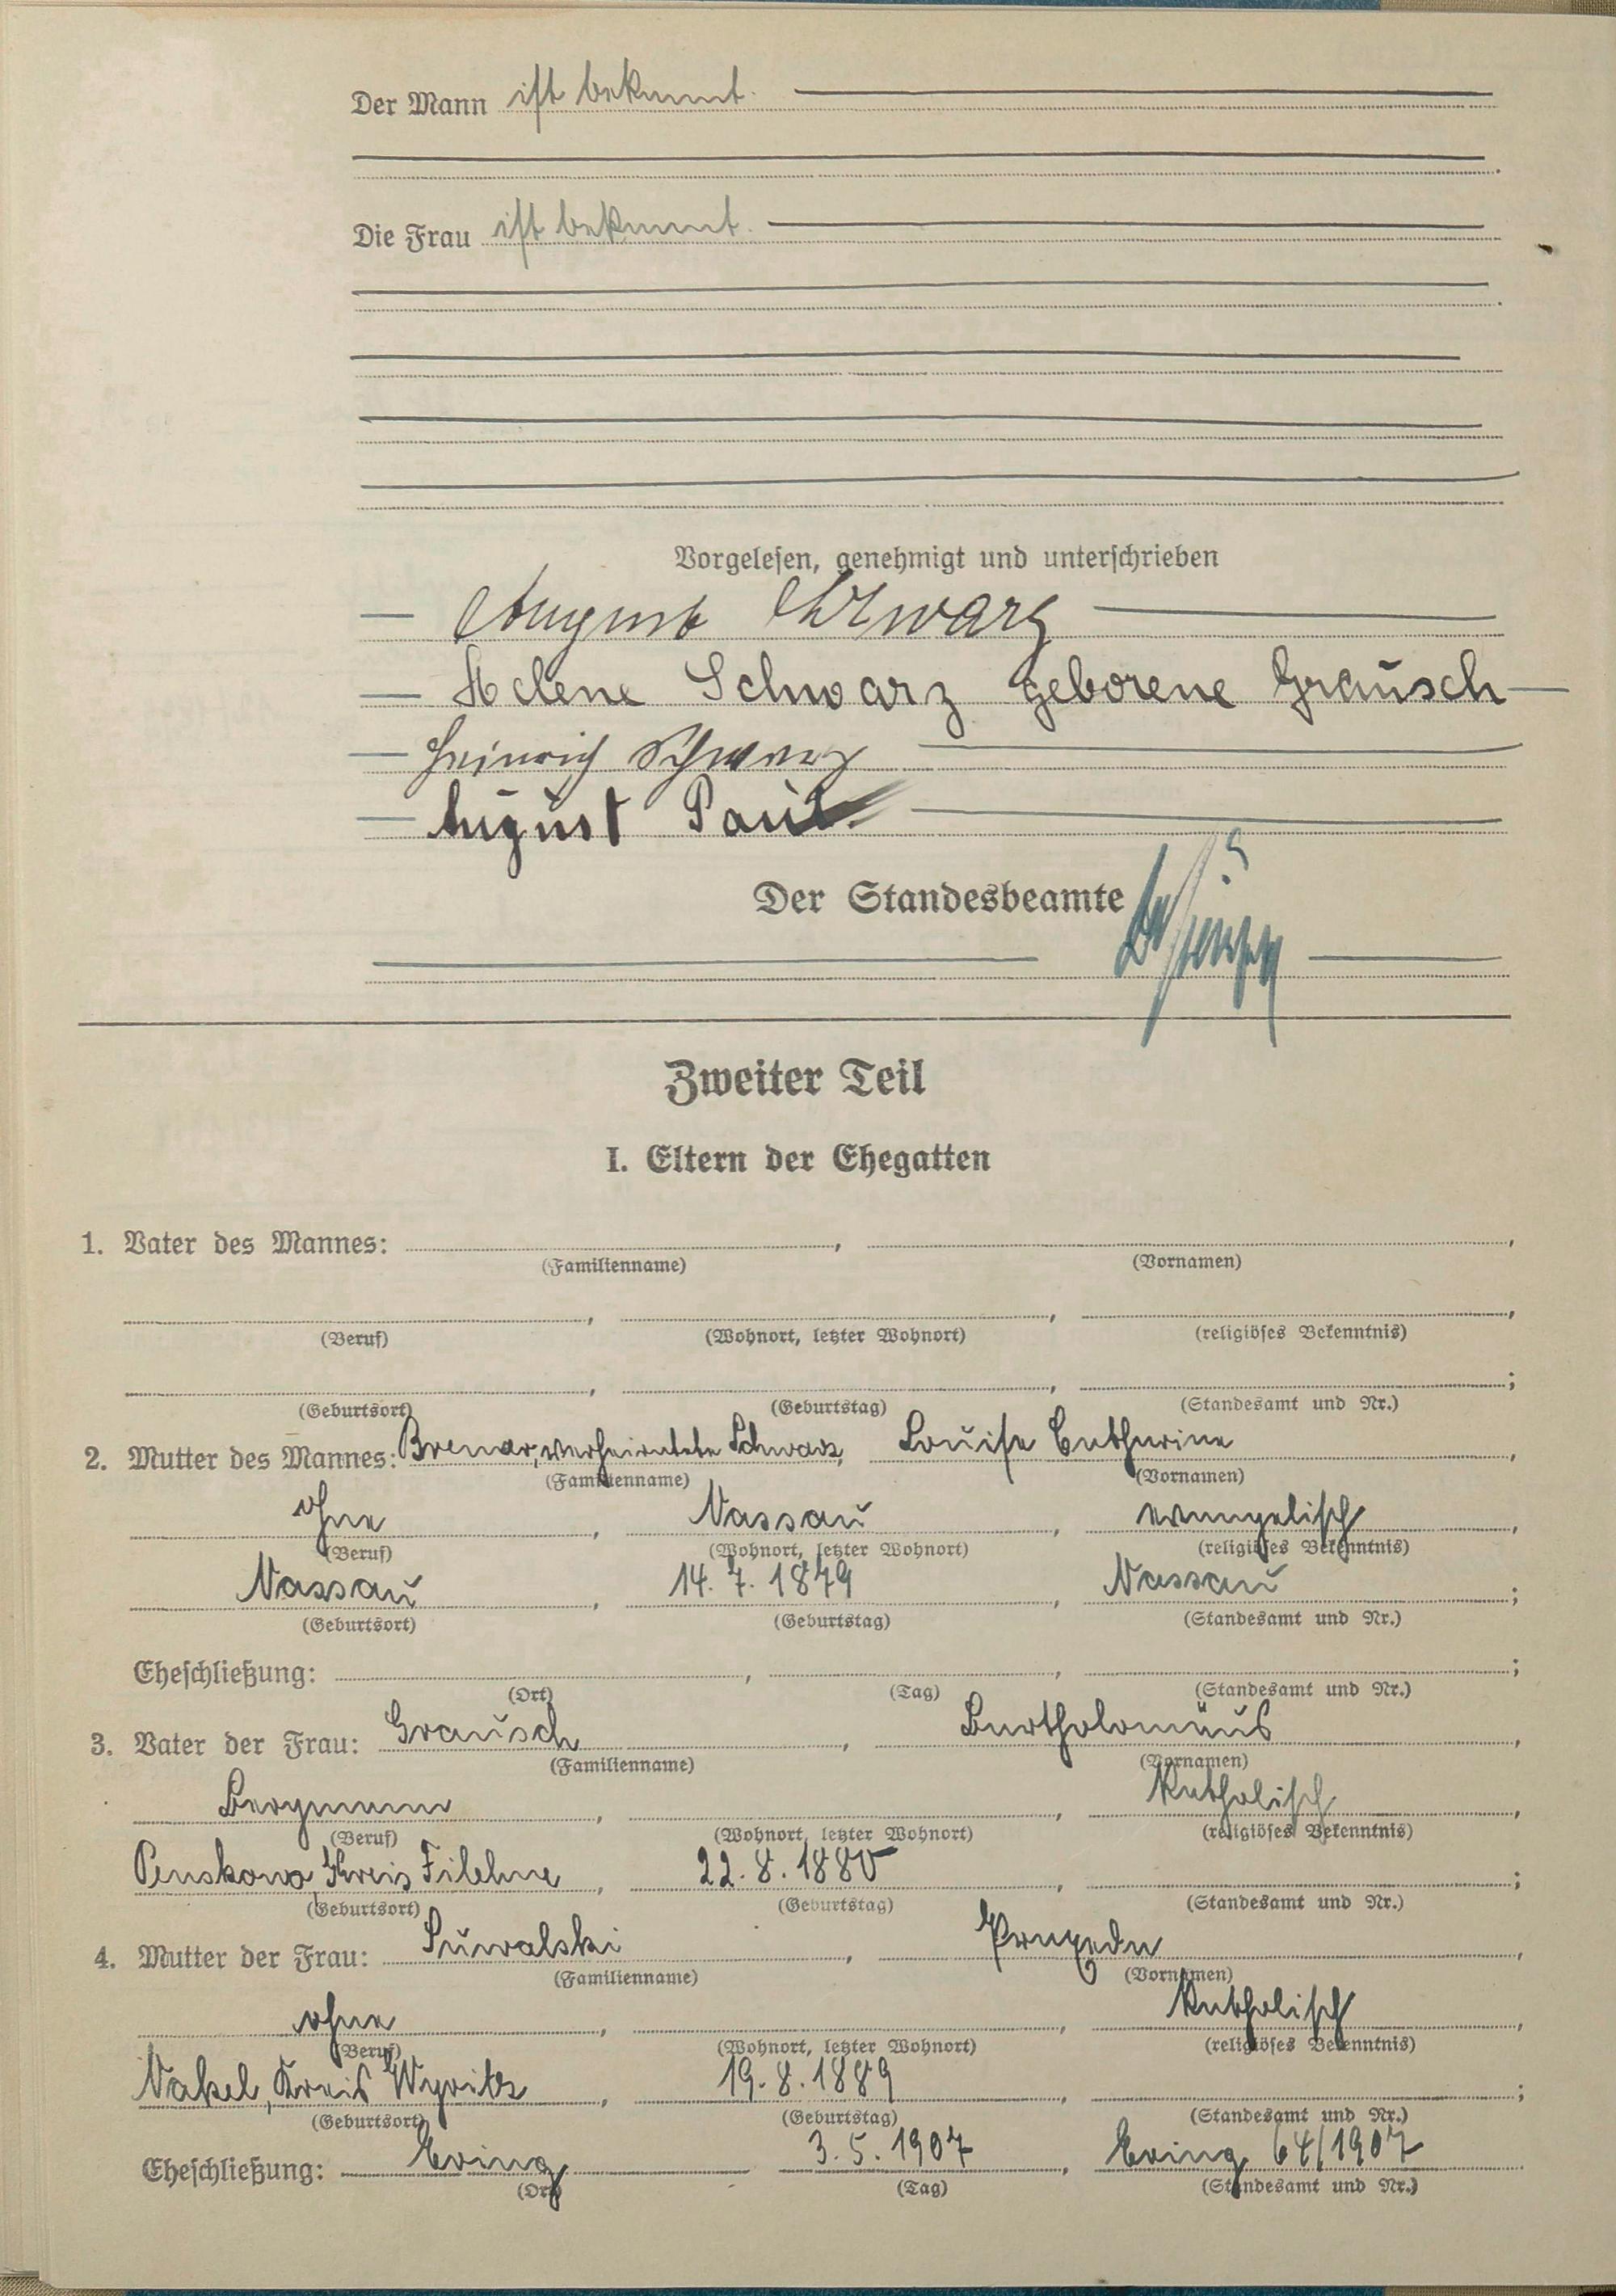 Der Mann ist bekannt.
Die Frau ist bekannt.
Vorgelesen, genehmigt und unterschrieben
August Schwarz
Helene Schwarz geborene Grausch
Heinrich Schwarz
August Paul.
Der Standesbeamte
Zweiter Teil
I. Eltern der Ehegatten
1. Vater des Mannes: ,
(Familienname) (Vornamen)
(Beruf) (Wohnort, letzter Wohnort) (religiöses Bekenntnis)
(Geburtsort) (Geburtstag) (Standesamt und Nr.)
2. Mutter des Mannes: Bremer, verheiratete Schwarz, Louise Catharine
(Familienname) (Vornamen)
ohne, Nassau, evangelisch,
(Beruf) (Wohnort, letzter Wohnort) (religiöses Bekenntnis)
Nassau, 14.7.1879, Nassau;
(Geburtsort) (Geburtstag) (Standesamt und Nr.)
Eheschließung:
(Ort) (Tag) (Standesamt und Nr.)
3. Vater der Frau: Grausch, Bartholomäus,
(Familienname) (Vornamen)
Bergmann, katholisch,
(Beruf) (Wohnort, letzter Wohnort) (religiöses Bekenntnis)
Penskowo, Kreis Filehne, 22.8.1880
(Geburtsort) (Geburtstag) (Standesamt und Nr.)
4. Mutter der Frau: Suwalski, Praxeda,
(Familienname) (Vornamen)
ohne, katholisch,
(Beruf) (Wohnort, letzter Wohnort) (religiöses Bekenntnis)
Nakel, Kreis Wyritz, 19.8.1889
(Geburtsort) (Geburtstag) (Standesamt und Nr.)
Eheschließung: Eving 3.5.1907, Eving 64/1907
(Ort) (Tag) (Standesamt und Nr.)